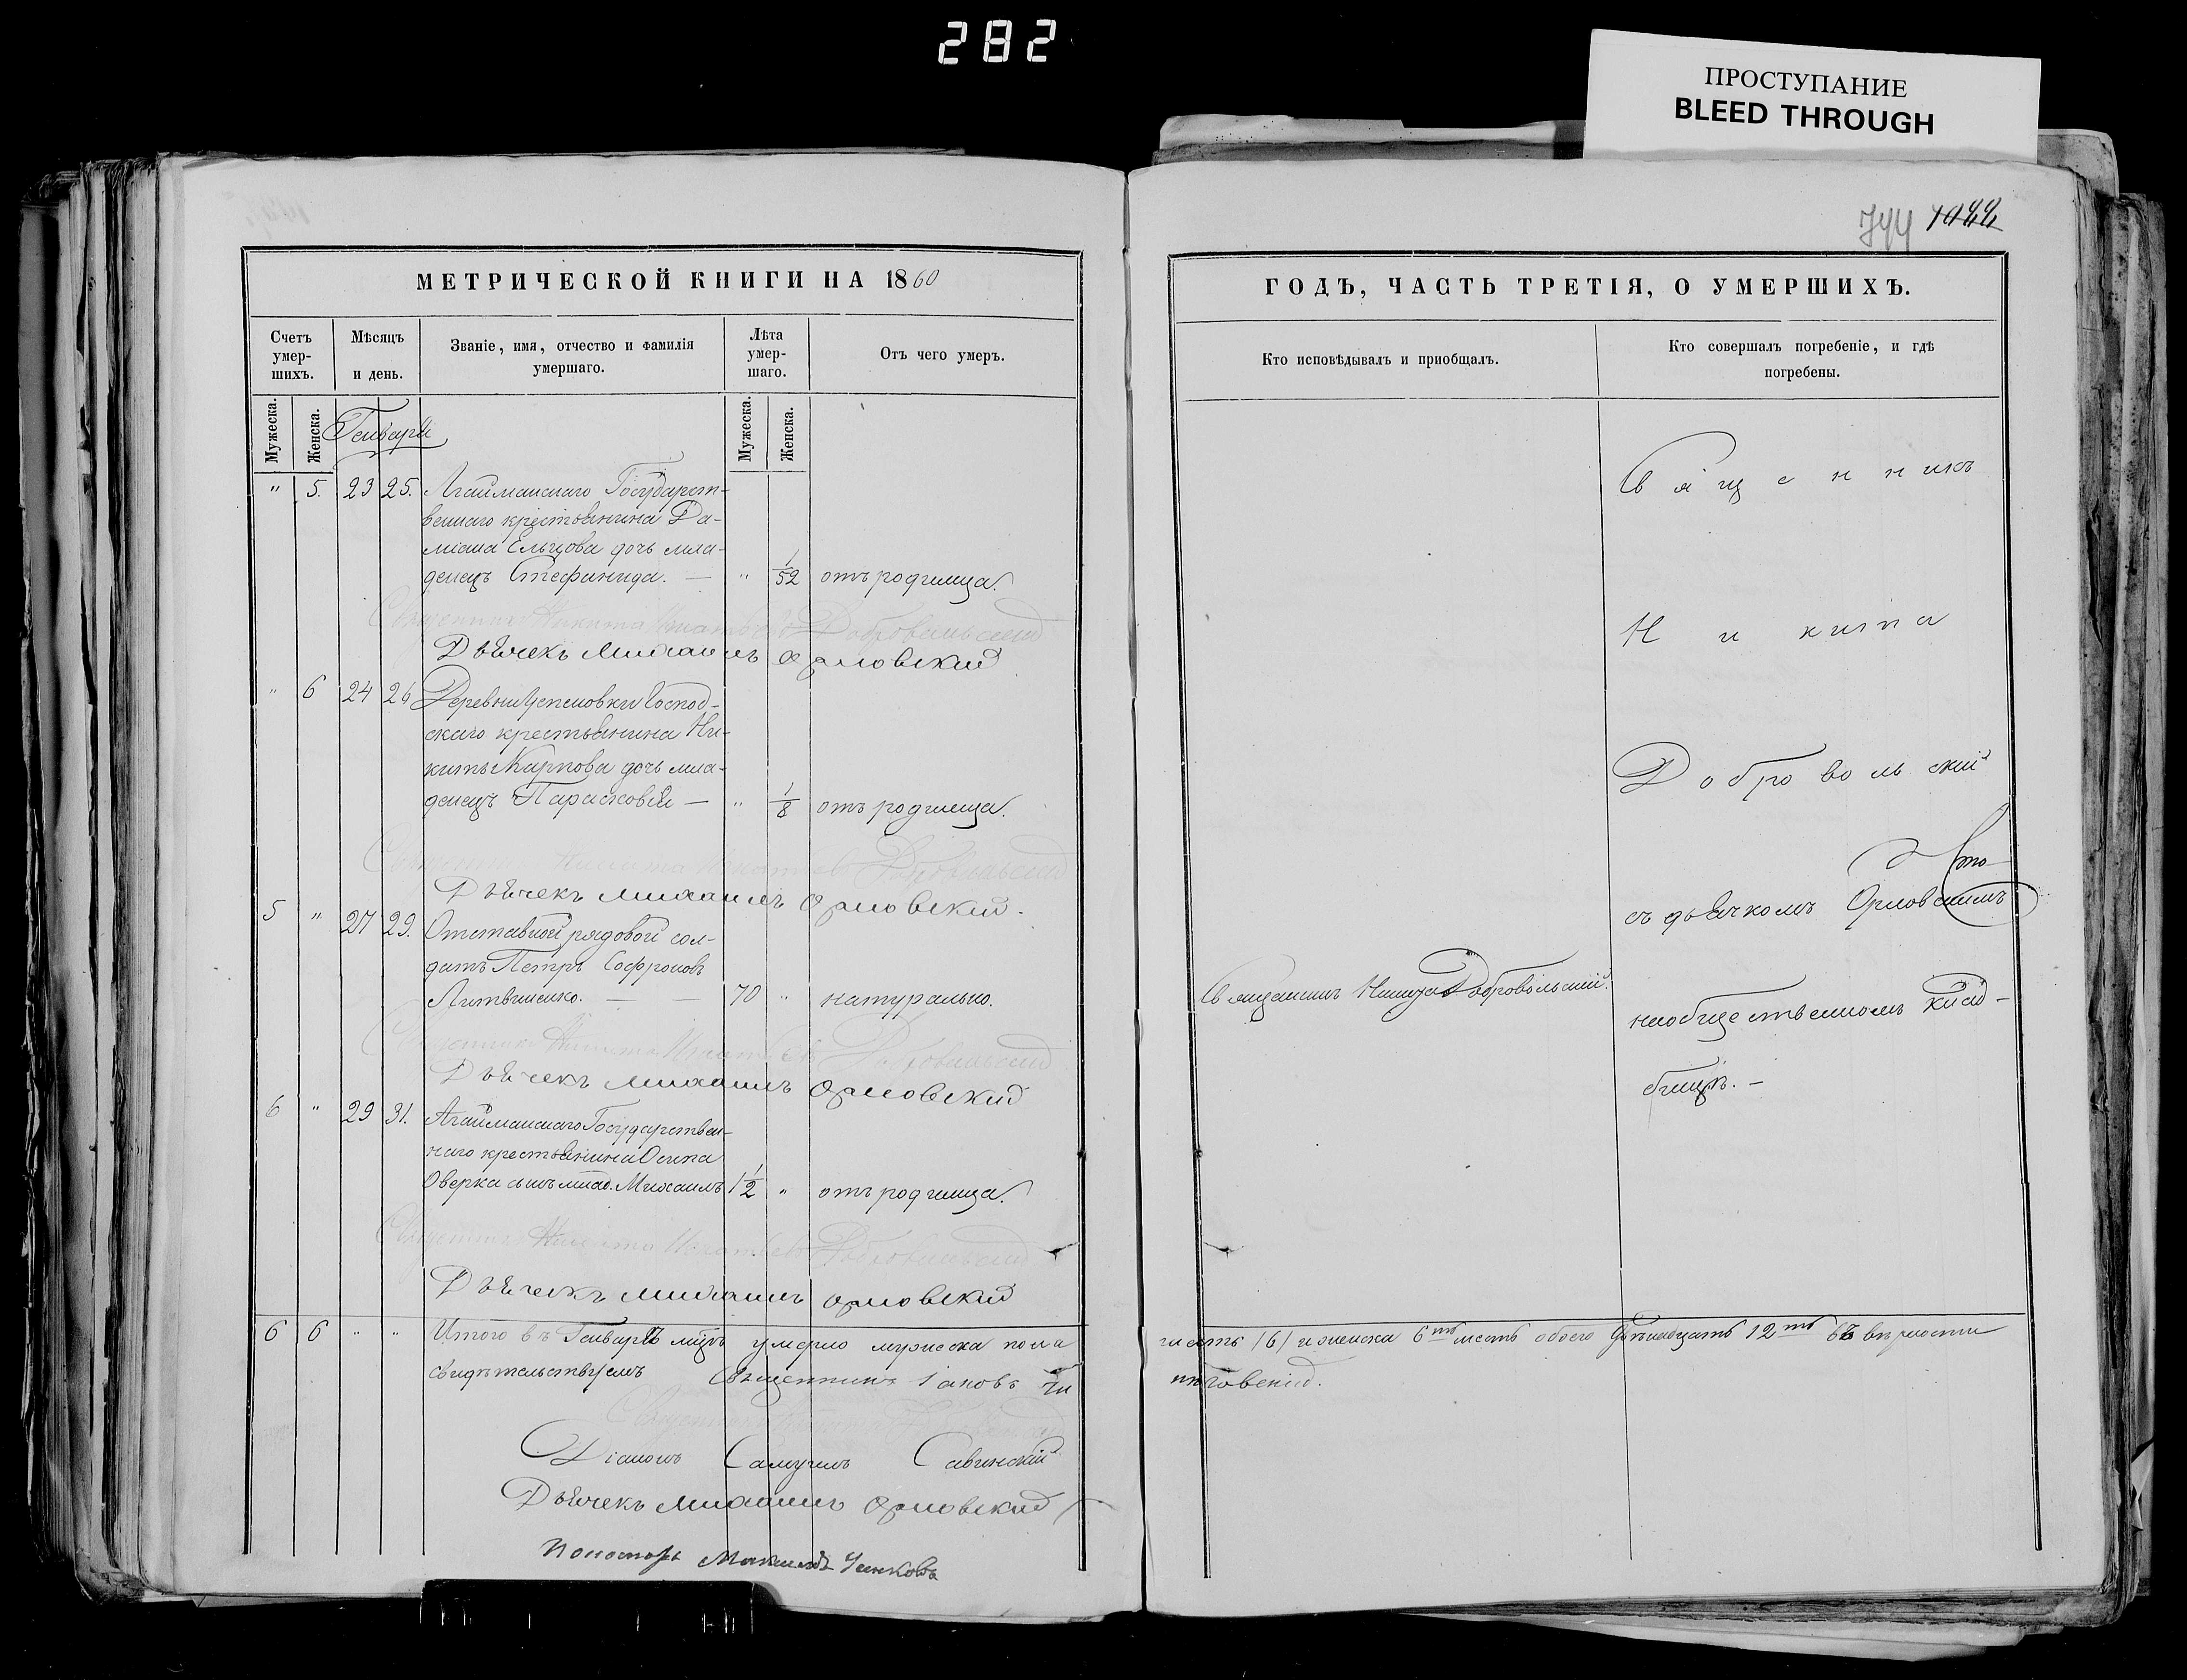 282
ПРОСТУПАНИЕ
BLEED THROUGH
744 1044
МЕТРИЧЕСКОЙ КНИГИ НА 1860
Счетъ умер-шихъ.
Мѣсяцъ и день.
Званіе, имя, отчество и фамилія умершаго.
Лѣта умер-шаго.
Отъ чего умеръ.
Мужеска.
Женска.
Генварь
Мужеска.
Женска.
" 5. 23 25. Агайманскаго Государст-
веннаго крестьянина Да-
міана Ельцова дочь мла-
денецъ Стефанида. — " 1/52 отъ родимца.
Священникъ Никита Игнатьевъ Добровольский
Дьячекъ Михаилъ Орловский
" 6 24 26 Деревни Успеновки Господ-
скаго крестьянина Ни-
киты Карпова дочь мла-
денецъ Парасковія — " 1/8 отъ родимца.
Священникъ Никита Игнатьевъ Добровольский
Дьячекъ Михаилъ Орловский.
5 " 27 29. Отставной рядовой сол-
датъ Петръ Софроновъ
Литвиненко. — — 70 " натурально.
Священникъ Никита Игнатьевъ Добровольский
Дьячекъ Михаилъ Орловский
6 " 29 31. Агайманскаго Государствен-
наго крестьянина Осипа
Оверка сынъ млад. Михаилъ 1 1/2 " отъ родимца.
Священникъ Никита Игнатьевъ Добровольский
Дьячекъ Михаилъ Орловский
6 6 " " Итого въ Генварѣ мцѣ умерло мужеска пола
свидѣтельствуемъ Священникъ Іаковъ
Діаконъ Самуилъ Савинскій
Дьячекъ Михаилъ Орловский
Пономарь
ГОДЪ, ЧАСТЬ ТРЕТІЯ, О УМЕРШИХЪ.
Кто исповѣдывалъ и приобщалъ.
Кто совершалъ погребеніе, и гдѣ погребены.
Священникъ Никита Добровольскій.
Священникъ
Никита
Добровольскій
съ дьячкомъ Орловскимъ
на общественномъ клад-
бищѣ. —
шесть /6/ и женска 6ть шесть обоего двѣнадцать 12ть въ вѣрности